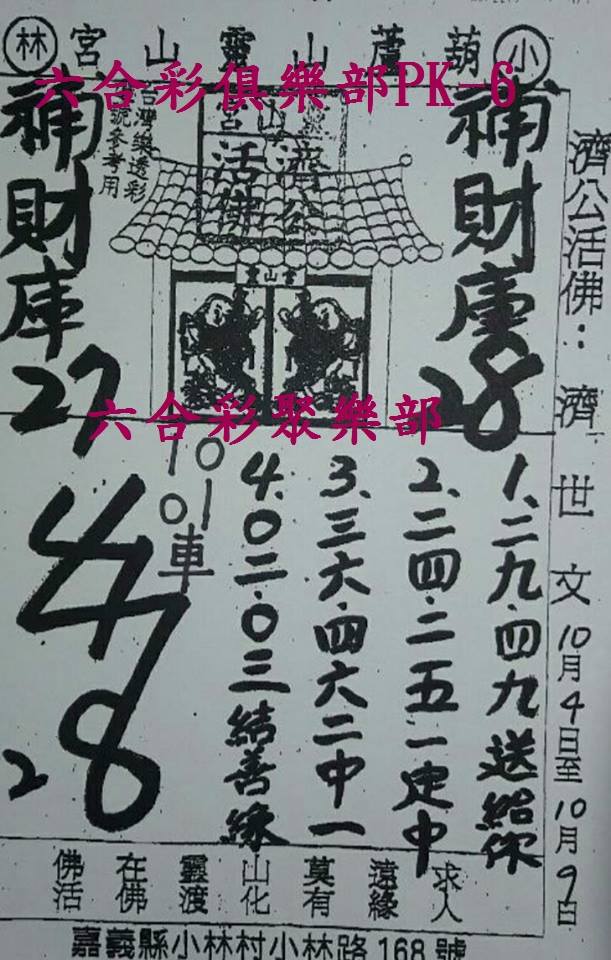 小葫蘆山靈山宮林
六合彩俱樂部PK-6
濟公活佛：濟世文10月4日至10月9日
補財庫
28
濟公
活佛
靈山宮
台灣樂透彩
號參考用
補財庫
27
六合彩聚樂部
1、二九.四九送給你
2、二四.二五一定中
3、三六.四六二中一
4、0二.0三結善緣
01
10
車
47
28
佛在靈山莫遠求
活佛渡化有緣人
嘉義縣小林村小林路168號